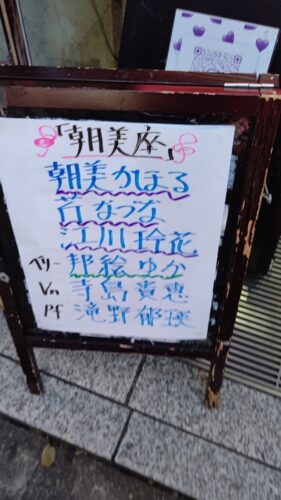 「朝美座」
朝美かほる
芹なづな
江川玲花
ベリー 邦絵ゆか
Vn 寺島貴恵
Pf 滝野郁瑛